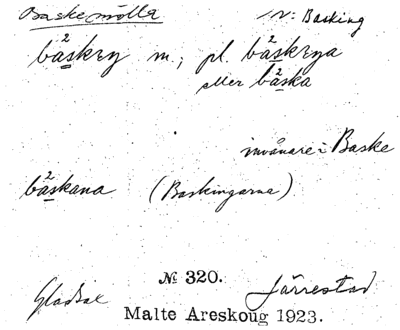 Baskemölla N: Basking
bäskry m; pl. bäskrya
eller bäska
invånare i Baske
bäskana (Baskingarna)
№ 320.
Gladsax Järrestad
Malte Areskoug 1923.